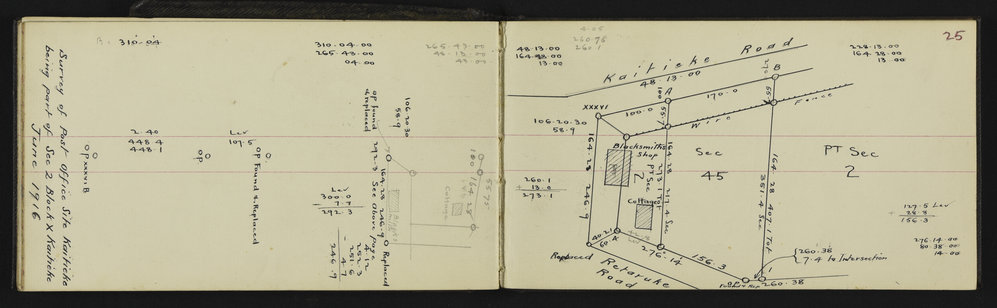 25
Survey of Post Office Site Kaitieke
being part of Sec 2 Block X Kaitieke
June 1916
B. 310.04
310.04.00
265.43.00
04.00
265.43.00
48.13.00
43.00
106.20.30
58.9
OP found
& replaced
2.40
448.4
448.1
Lev
107.5
OP XXXVI B
OP
OP Found & Replaced
Lev
300.0
7.7
292.3
292.3 See Above page
164.28 246.9 O Replaced
4.12
252.3
251.6
4.7
246.9
180
164.28
55.75
Cottage
48.13.00
164.28.00
13.00
4.05
260.75
260.1
Kaitieke Road
48.13.00
228.13.00
164.28.00
13.00
XXXVI
100.0
A
170.0
B
100
55.7
55
106.20.30
58.9
Wire Fence
Blacksmiths
Shop
2
PT Sec
Cottages
Sec
45
PT Sec
2
260.1
+ 13.0
273.1
164.28 246.9
164.28 217.4 Sec
273.1 Tot
164.28 407.1 Tot
351.4 Sec
127.5 Lev
+ 28.8
156.3
276.14.00
80.38.00
14.00
40.21
60
276.14
156.3
260.38
7.4 to Intersection
260.38
Replaced
Retaruke
Road